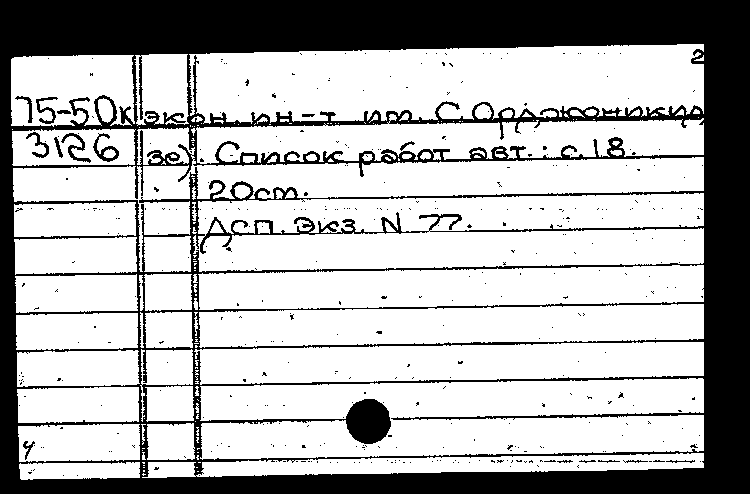 2
75-50к экон. ин-т им. С. Орджоникид
3126 зе). Список работ авт.: с. 18.
20см.
Дсп. Экз. N 77.